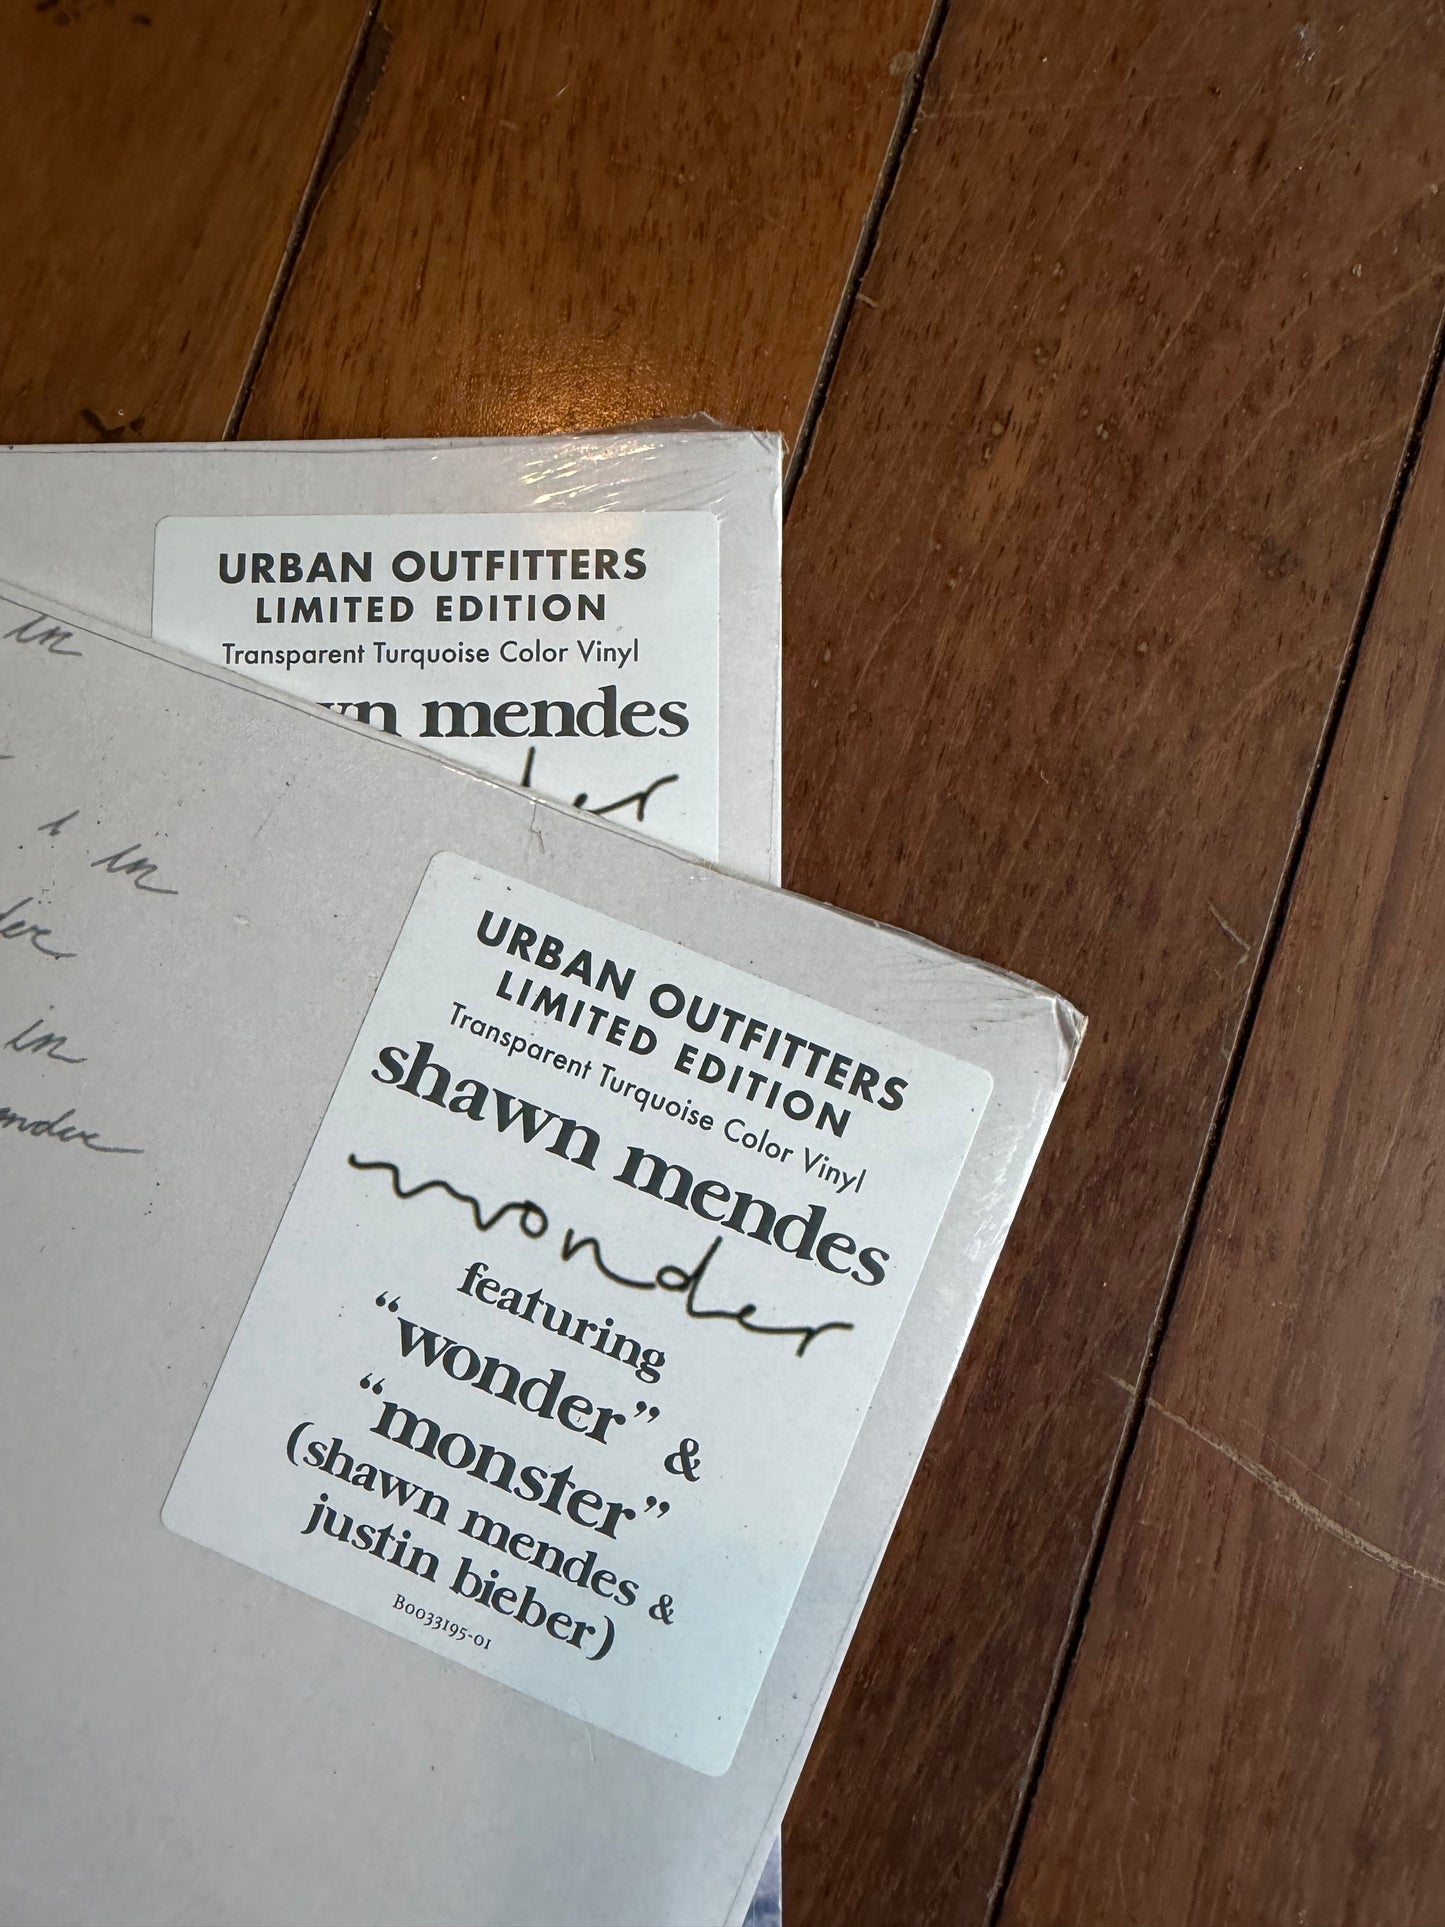 URBAN OUTFITTERS
LIMITED EDITION
Transparent Turquoise Color Vinyl
mendes
in
i in
in
URBAN OUTFITTERS
LIMITED EDITION
Transparent Turquoise Color Vinyl
shawn mendes
wonder
featuring
“wonder” &
“monster”
(shawn mendes &
justin bieber)
B0033195-01